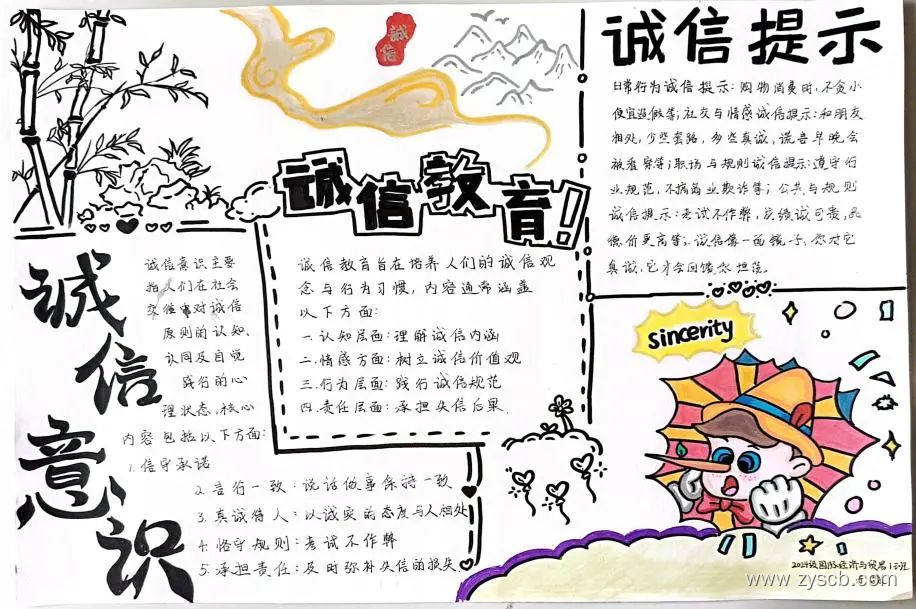 誠信
诚信提示
日常行为诚信提示:购物消费时,不贪小
便宜逃假等;社交与情感诚信提示:和朋友
相处,少些套路,多些真诚,谎言早晚会
被看穿等;职场与规则诚信提示:遵守行
业规范,不搞商业欺诈等;公共与规则
诚信提示:考试不作弊,成绩诚可贵,品
德价更高等。诚信像一面镜子,你对它
真诚,它才会回馈你坦荡。
誠信教育!
诚信教育旨在培养人们的诚信观
念与行为习惯,内容通常涵盖
以下方面:
一.认知层面:理解诚信内涵
二.情感方面:树立诚信价值观
三.行为层面:践行诚信规范
四.责任层面:承担失信后果.
诚信意识
诚信意识主要
指人们在社会
交往中对诚信
原则的认知、
认同及自觉
践行的心
理状态.核心
内容包括以下方面:
1.信守承诺
2.言行一致:说话做事保持一致
3.真诚待人:以诚实的态度与人相处
4.恪守规则:考试不作弊
5.承担责任:及时弥补失信的损失
sincerity
2024级国际经济与贸易1班
www.zyscb.com